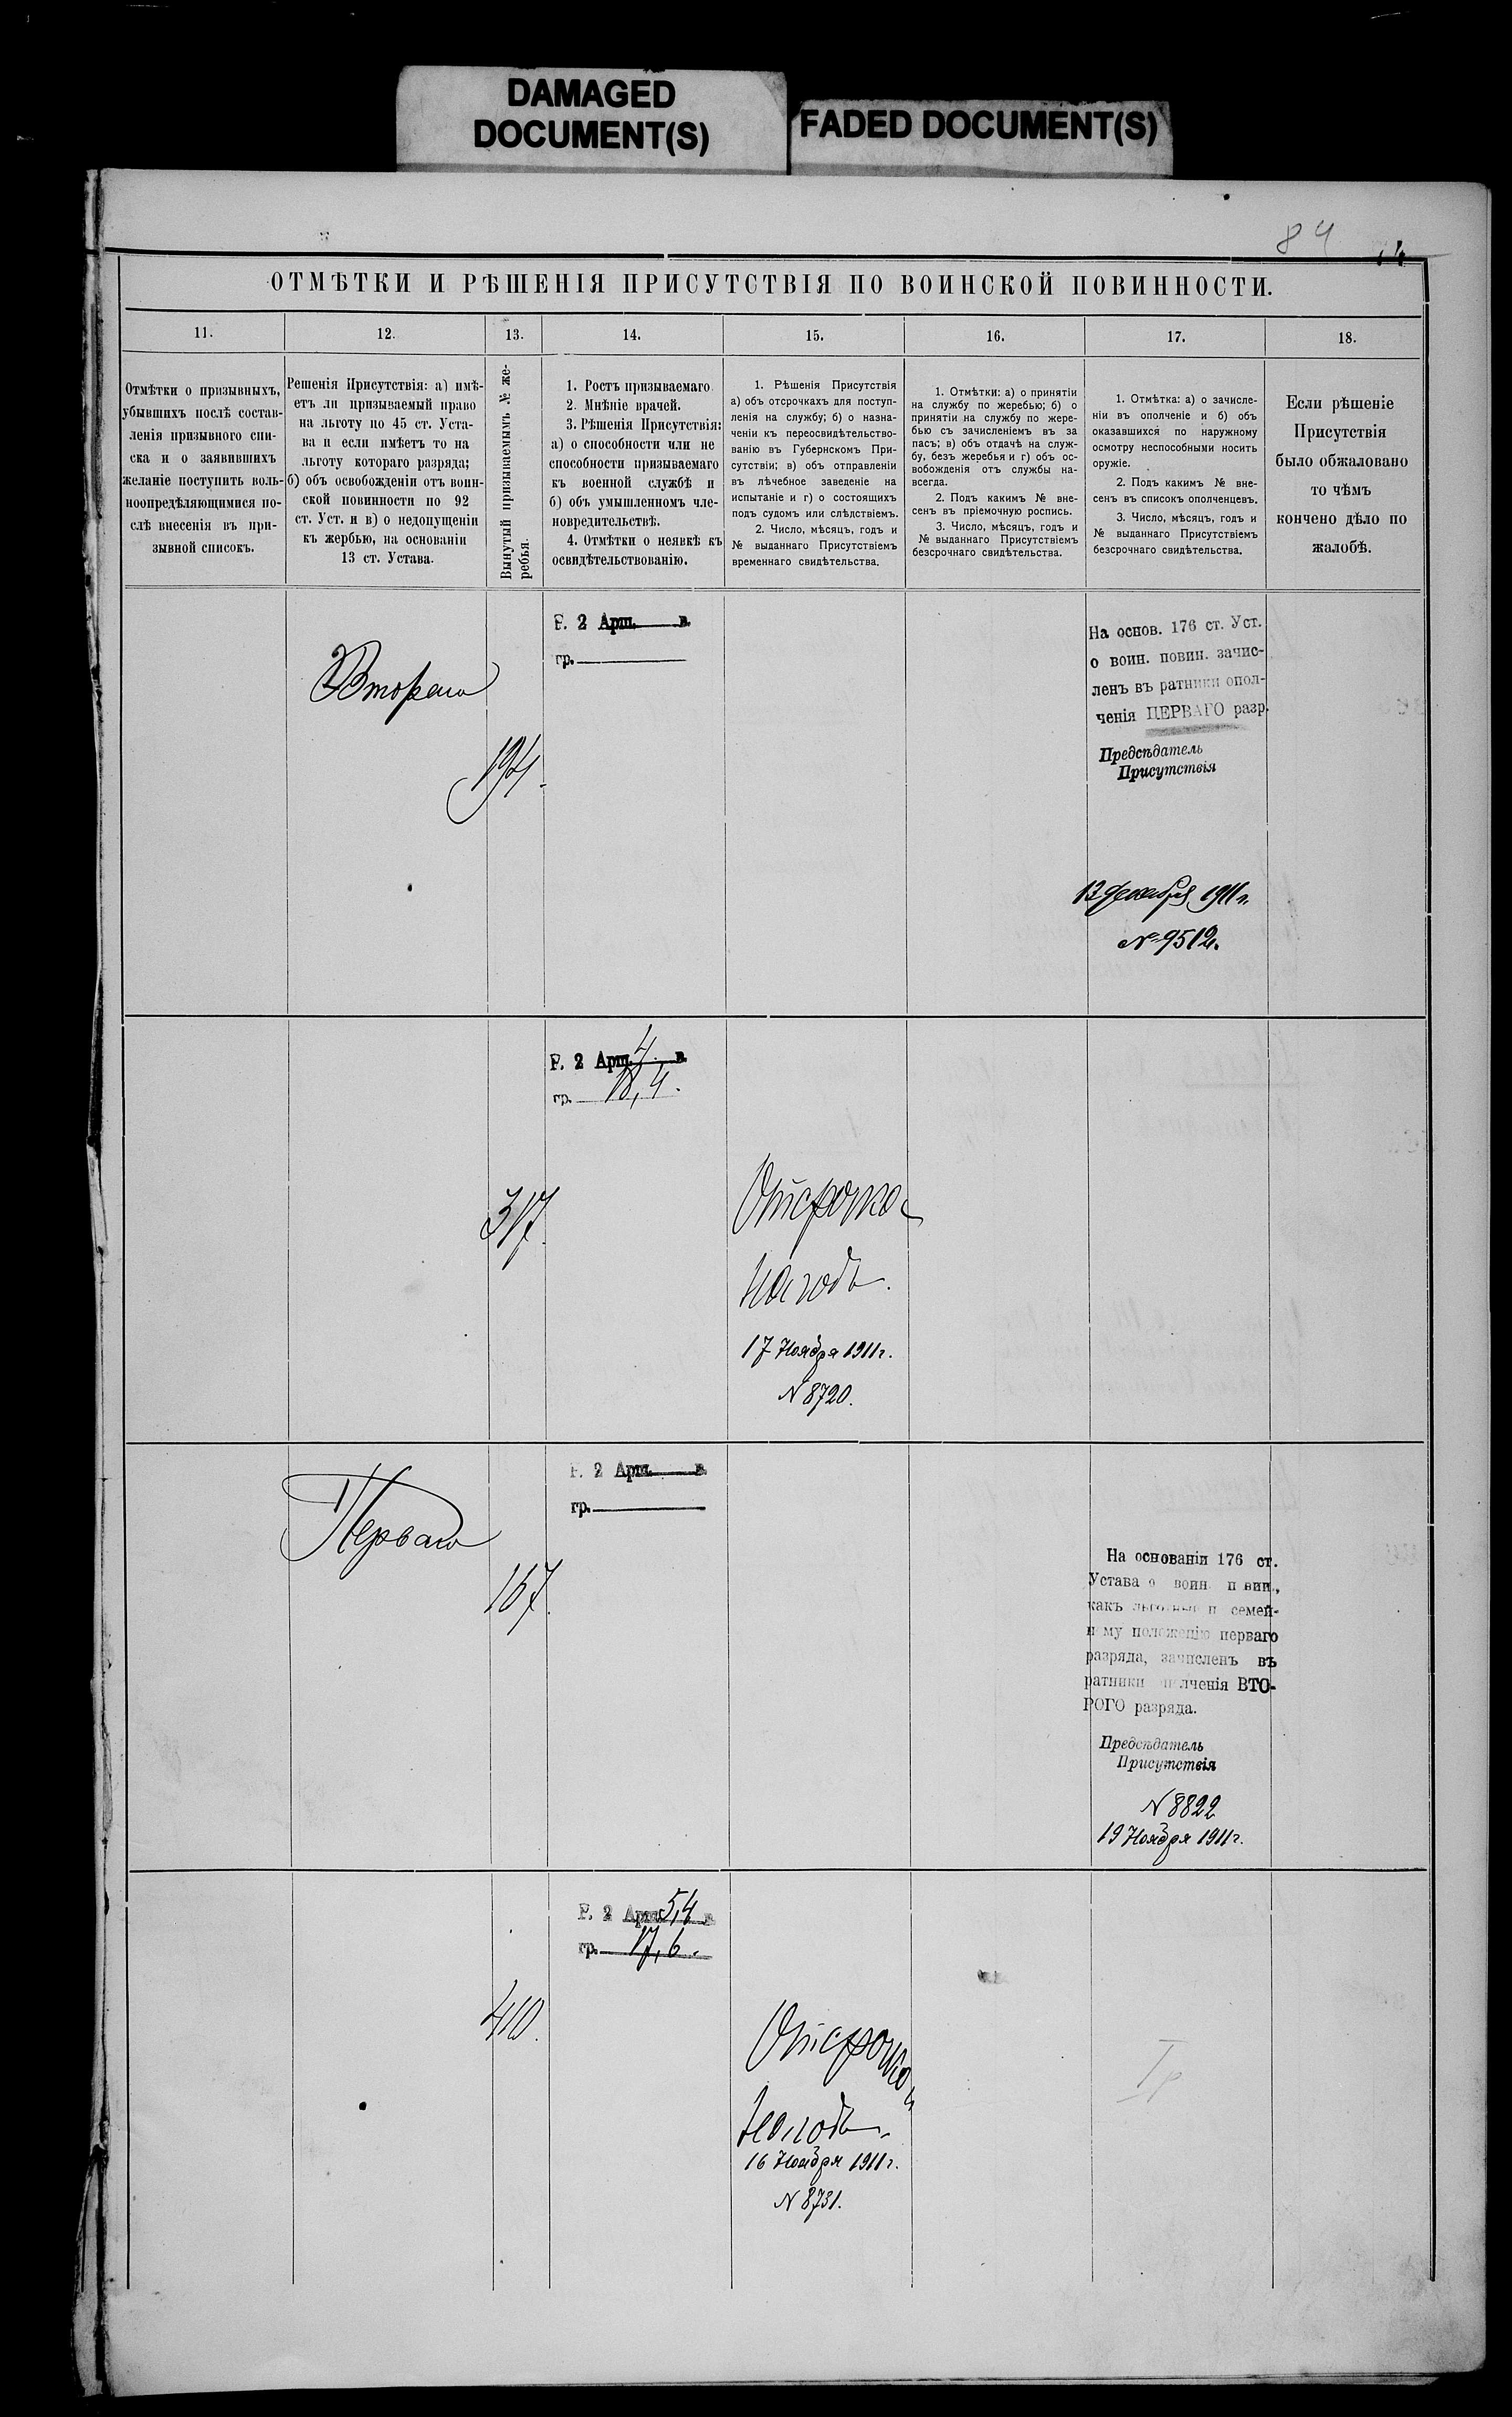 DAMAGED
DOCUMENT(S)
FADED DOCUMENT(S)
84
ОТМѢТКИ И РѢШЕНІЯ ПРИСУТСТВІЯ ПО ВОИНСКОЙ ПОВИННОСТИ.
11.
12.
13.
14.
15.
16.
17.
18.
Отмѣтки о призывныхъ,
убывшихъ послѣ состав-
ленія призывного спи-
ска и о заявившихъ
желаніе поступить воль-
ноопредѣляющимися по-
слѣ внесенія въ при-
зывной списокъ.
Решенія Присутствія: а) имѣ-
етъ ли призываемый право
на льготу по 45 ст. Уста-
ва и если имѣетъ то на
льготу котораго разряда;
б) объ освобожденіи отъ воин-
ской повинности по 92
ст. Уст. и в) о недопущеніи
къ жербью, на основаніи
13 ст. Устава.
Вынутый призываемымъ № же-
ребья.
1. Ростъ призываемаго
2. Мнѣніе врачей.
3. Рѣшенія Присутствія:
а) о способности или не
способности призываемаго
къ военной службѣ и
б) объ умышленномъ чле-
новредительствѣ.
4. Отмѣтки о неявкѣ къ
освидѣтельствованію.
1. Рѣшенія Присутствія
а) объ отсрочкахъ для поступ-
ленія на службу; б) о назна-
ченіи къ переосвидѣтельство-
ванію въ Губернскомъ При-
сутствіи; в) объ отправленіи
въ лѣчебное заведеніе на
испытаніе и г) о состоящихъ
подъ судомъ или слѣдствіемъ.
2. Число, мѣсяцъ, годъ и
№ выданнаго Присутствіемъ
временнаго свидѣтельства.
1. Отмѣтки: а) о принятіи
на службу по жеребью; б) о
принятіи на службу по жере-
бью съ зачисленіемъ въ за
пасъ; в) объ отдачѣ на служ-
бу, безъ жеребья и г) объ ос-
вобожденія отъ службы на-
всегда.
2. Подъ какимъ № вне-
сенъ въ пріемочную роспись.
3. Число, мѣсяцъ, годъ и
№ выданнаго Присутствіемъ
безсрочнаго свидѣтельства.
1. Отмѣтка: а) о зачисле-
ніи въ ополченіе и б) объ
оказавшихся по наружному
осмотру неспособными носить
оружіе.
2. Подъ какимъ № вне-
сенъ въ списокъ ополченцевъ.
3. Число, мѣсяцъ, годъ и
№ выданнаго Присутствіемъ
безсрочнаго свидѣтельства.
Если рѣшеніе
Присутствія
было обжаловано
то чѣмъ
кончено дѣло по
жалобѣ.
Втораго
194.
Р. 2 Арш. в.
гр.
На основ. 176 ст. Уст.
о воин. повин. зачис-
ленъ въ ратники опол-
ченія ПЕРВАГО разр.
Предсѣдатель
Присутствія
13 декабря 1911 г.
№ 9512.
317.
Р. 2 Арш. 4 в.
гр. 18,4.
Отсрочка
на годъ.
17 Ноября 1911 г.
N 8720.
Перваго
167.
Р. 2 Арш. в.
гр.
На основаніи 176 ст.
Устава о воин. п вин.,
какъ семей-
н му положенію перваго
разряда, зачисленъ въ
ратники лченія ВТО-
РОГО разряда.
Предсѣдатель
Присутствія
N 8822
19 Ноября 1911 г.
410.
Р. 2 Арш. 5,4 в.
гр. 17,6.
Отсрочка
на годъ.
16 Ноября 1911 г.
N 8731.
I р